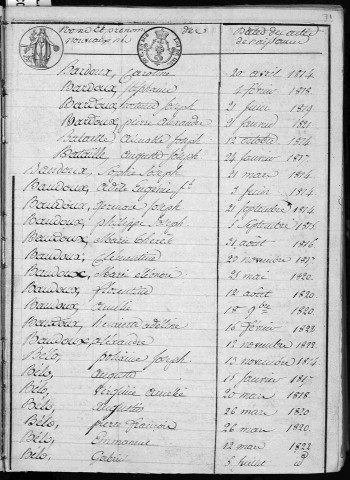 Noms et prénoms nouveaux nés
Dates des actes de naissance
Bardoux, Caroline 20 avril 1814.
Bardoux, 4 février 1818.
Bardoux, Joseph 21 1819.
Bardoux, pierre alexandre 21 janvier 1821.
Bataille, aimable Joseph 12 octobre 1814.
Bataille, auguste Joseph 24 janvier 1817.
Baudoux, Sophie Joseph 21 mars 1814.
Baudoux, adèle Eugénie 2 1814.
Baudoux, Joseph 21 septembre 1814.
Baudoux, philippe Joseph 5 septembre 1815.
Baudoux, Marie thérèse 21 août 1816.
Baudoux, Clémentine 20 novembre 1817.
Baudoux, Marie 21 mai 1820.
Baudoux, florentine 12 août 1820.
Baudoux, amélie 18 9bre 1820.
Baudoux, henriette adéline 16 février 1822.
Baudoux, alexandre 12 novembre 1822.
Bélo, Joseph 13 novembre 1814.
Bélo, auguste 18 janvier 1817.
Bélo, Virginie amélie 20 mars 1818.
Bélo, augustin 26 mars 1820
Bélo, pierre françois 26 mars 1820.
Bélo, Emmanuel 12 mars 1822
Bélo, 5 juillet id